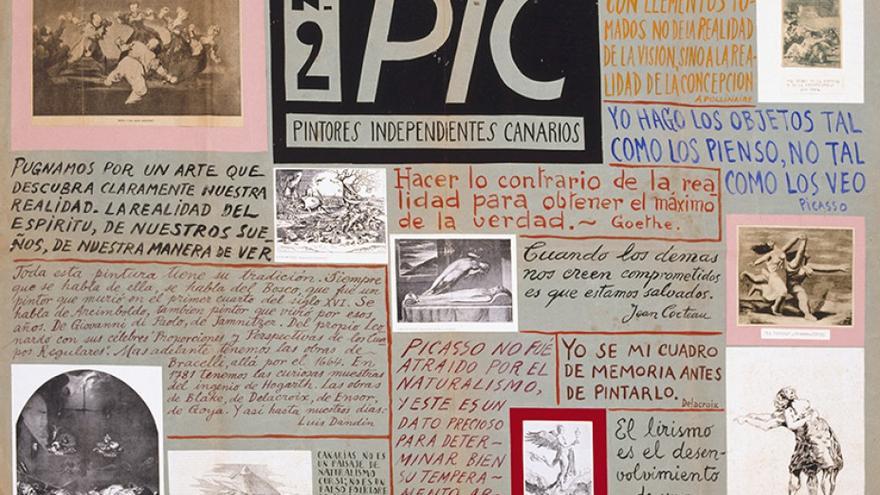 N.
2
PIC
PINTORES INDEPENDIENTES CANARIOS
CON ELEMENTOS TO-
MADOS NO DE LA REALIDAD
DE LA VISION, SINO A LA REA-
LIDAD DE LA CONCEPCION
APOLLINAIRE
YO HAGO LOS OBJETOS TAL
COMO LOS PIENSO, NO TAL
COMO LOS VEO
PICASSO
PUGNAMOS POR UN ARTE QUE
DESCUBRA CLARAMENTE NUESTRA
REALIDAD. LA REALIDAD DEL
ESPÍRITU, DE NUESTROS SUE-
ÑOS, DE NUESTRA MANERA DE VER
Hacer lo contrario de la rea
lidad para obtener el máximo
de la verdad. ~ Goethe.
Cuando los demas
nos creen comprometidos
es que estamos salvados.
Jean Cocteau
Toda esta pintura tiene su tradición. Siempre
que se habla de ella, se habla del Bosco, que fué un
pintor que murió en el primer cuarto del siglo XVI. Se
habla de Arcimboldo, tambien pintor que vivió por esos
años. De Giovanni di Paolo, de Jamnitzer. Del propio Leo
nardo con sus célebres Proporciones y Perspectivas de los Cuer
pos Regulares. Mas adelante tenemos las obras de
Bracelle, allá por el 1664. En
1781 tenemos las curiosas muestras
del ingenio de Hogarth. Las obras
de Blake, de Delacroix, de Ensor,
de Goya. Y asi hasta nuestros dias:
Luis Dandín
PICASSO NO FUÉ
ATRAIDO POR EL
NATURALISMO,
Y ESTE ES UN
DATO PRECIOSO
PARA DETER-
MINAR BIEN
SU TEMPERA-
MENTO AR-
YO SE MI CUADRO
DE MEMORIA ANTES
DE PINTARLO.
Delacroix
El lirismo
es el desen-
volvimiento
CANARIAS NO ES
UN PAISAJE DE
NATURALISMO
CURSI; NO ES UN
FALSO FOLKLORE